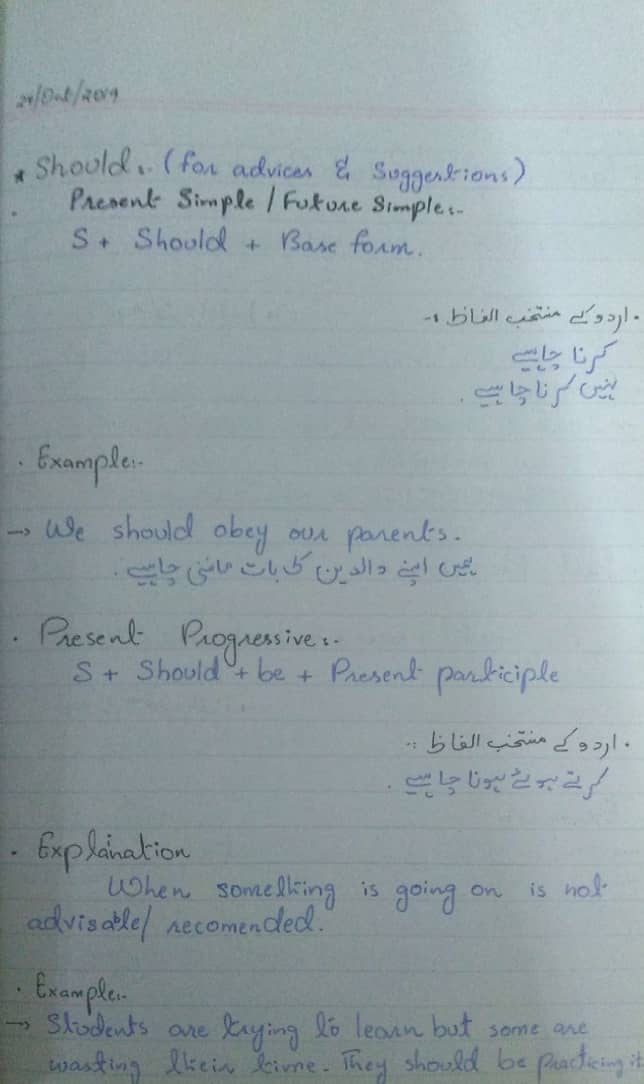 24/Oct/2019
* Should:. (for advices & Suggestions)
. Present Simple / Future Simple:-
S + Should + Base form.
. اردو کے منتخب الفاظ :-
کرنا چاہیے
نہیں کرنا چاہیے .
. Example:-
→ We should obey our parents.
ہمیں اپنے والدین کی بات ماننی چاہیے .
. Present Progressive:-
S + Should + be + Present participle
. اردو کے منتخب الفاظ :-
کرتے ہوئے ہونا چاہیے .
. Explaination
When something is going on is not
advisable/ recomended.
. Example:-
→ Students are trying to learn but some are
wasting their time. They should be practicing it